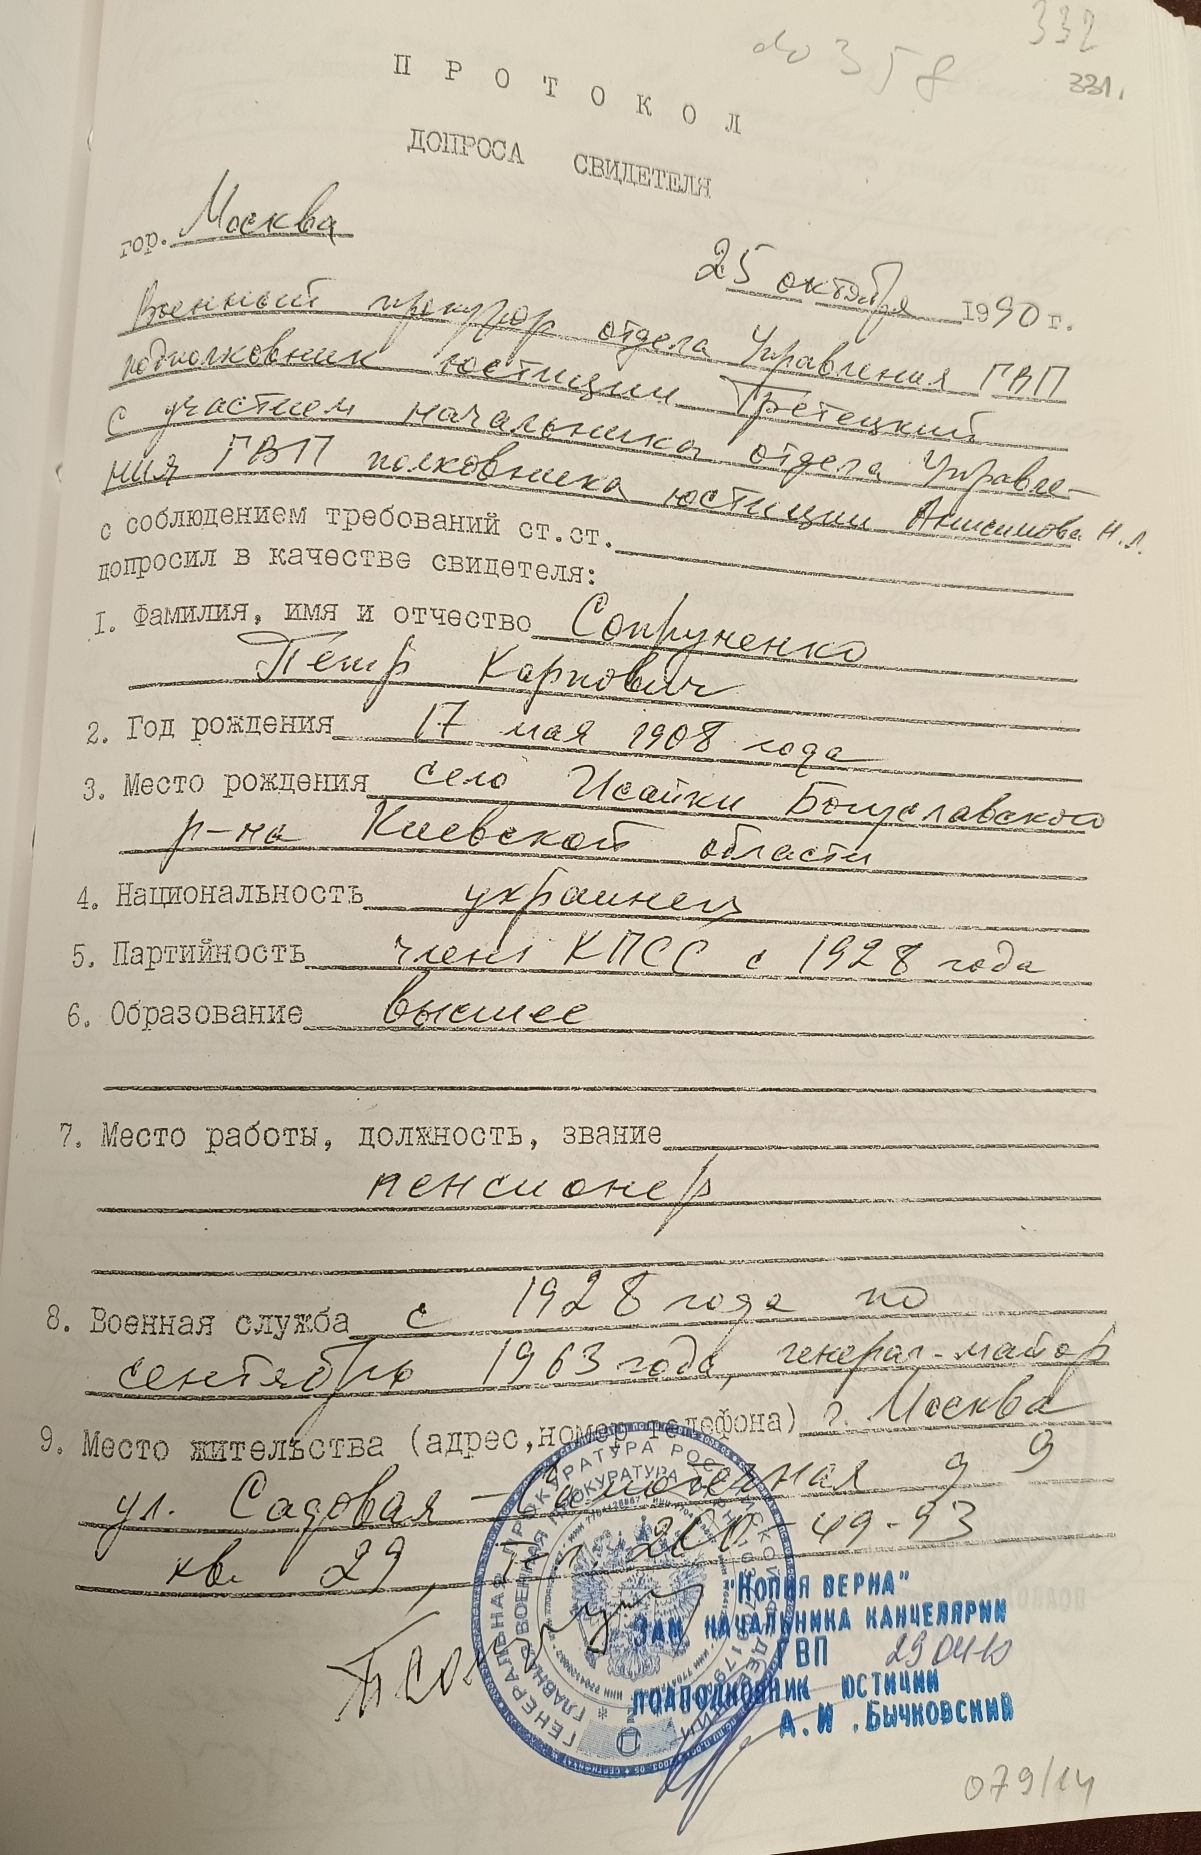 332
до 358
331.
ПРОТОКОЛ
ДОПРОСА СВИДЕТЕЛЯ
гор. Москва
25 октября 1990 г.
Военный прокурор отдела Управления ГВП
подполковник юстиции Третецкий
с участием начальника отдела Управле-
ния ГВП полковника юстиции Анисимова Н.Л.
с соблюдением требований ст.ст.
допросил в качестве свидетеля:
1. Фамилия, имя и отчество Сопруненко
Петр Карпович
2. Год рождения 17 мая 1908 года
3. Место рождения село Исайки Богуславского
р-на Киевской области
4. Национальность украинец
5. Партийность член КПСС с 1928 года
6. Образование высшее
7. Место работы, должность, звание
пенсионер
8. Военная служба с 1928 года по
сентябрь 1963 года, генерал-майор
9. Место жительства (адрес, номер телефона) г. Москва
ул. Садовая-Самотечная д 9
кв. 29, т. 200-49-93
ГЕНЕРАЛЬНАЯ ПРОКУРАТУРА РОССИЙСКОЙ ФЕДЕРАЦИИ
ГЛАВНАЯ ВОЕННАЯ ПРОКУРАТУРА
"КОПИЯ ВЕРНА"
ЗАМ НАЧАЛЬНИКА КАНЦЕЛЯРИИ
ГВП 290410
ПОДПОЛКОВНИК ЮСТИЦИИ
А.И.БЫЧКОВСКИЙ
079/14